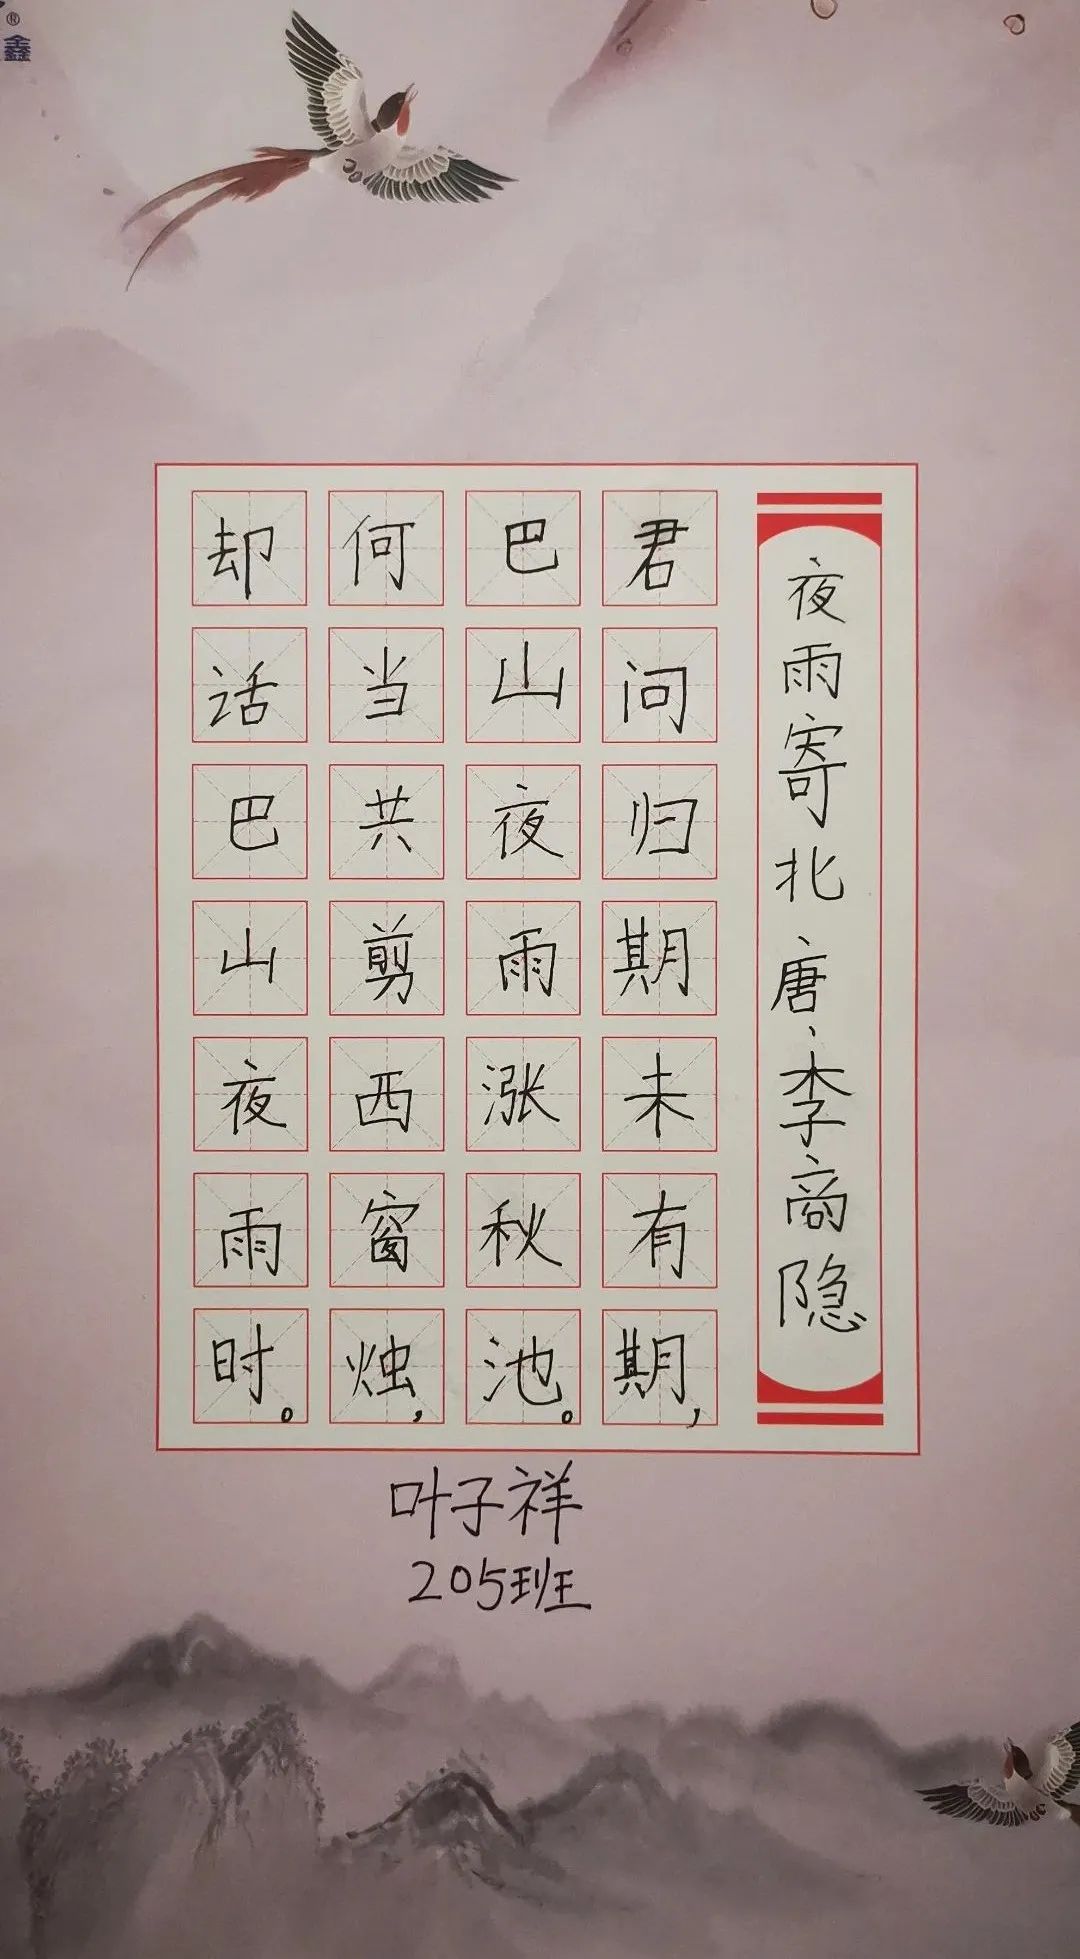 ®
鑫
夜雨寄北 唐·李商隐
君问归期未有期，
巴山夜雨涨秋池。
何当共剪西窗烛，
却话巴山夜雨时。
叶子祥
205班